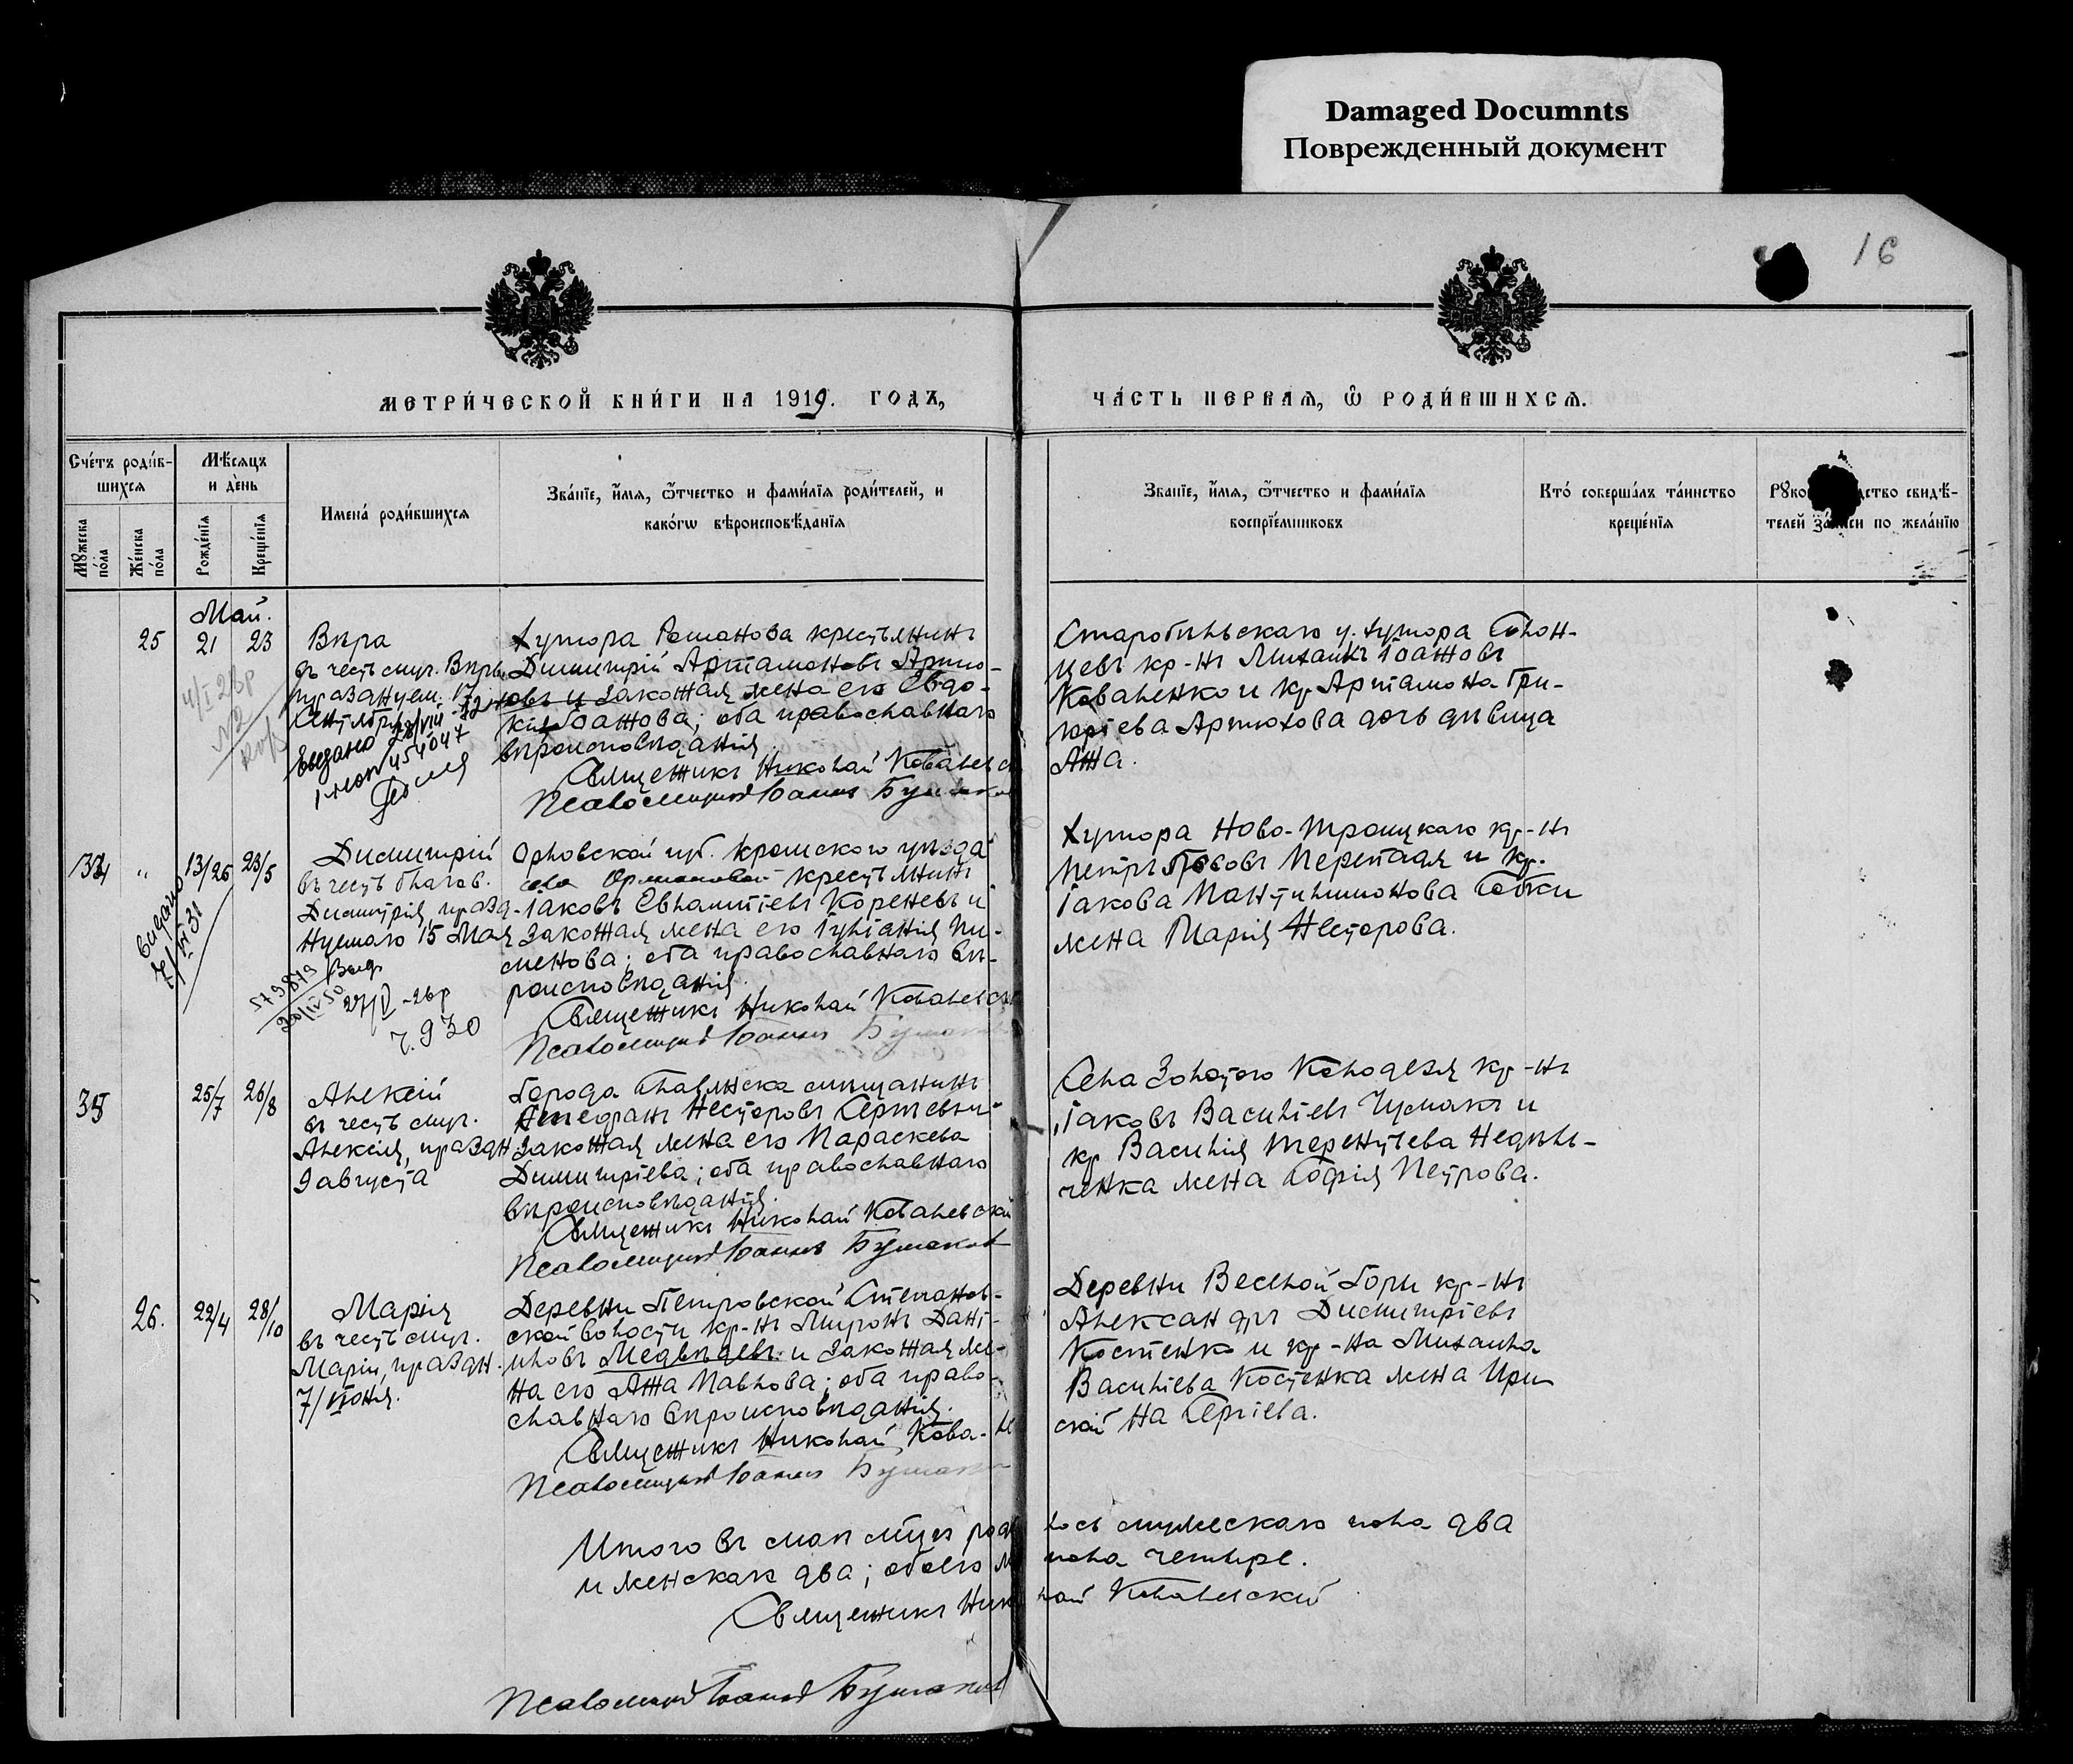 Damaged Documnts
Поврежденный документ
16
МЕТРИ́ЧЕСКОЙ КНИ́ГИ НА 1919. ГОДЪ,
ЧА́СТЬ ПЕРВАЯ, Ѡ҆ РОДИ́ВШИХСЯ.
Сче́тъ роди́в-
шихся
Мꙋжеска
по́ла
Же́нска
по́ла
Мѣ́сяцъ
и де́нь
Рожде́нїя
Креще́нїя
Имена̀ роди́вшихся
Зва́нїе, и҆́мя, ѻ҆́тчество и фами́лїя роди́телей, и
како́гѡ вѣроисповѣ́данїя
Зва́нїе, и҆́мя, ѻ҆́тчество и фами́лїя
воспрїе́мниковъ
Кто́ соверша́лъ та́инство
креще́нїя
телей за́писи по жела́нїю
Май.
25 21 23 Вѣра
въ честь муч. Вѣры
празднуем. 17
Сентября
Выдано
454047
Хутора Романова крестьянинъ
Димитрій Артамоновъ Артю-
ховъ и законная жена его Евдо-
кія Іоаннова; оба православнаго
вѣроисповѣданія
Священникъ Николай Ковалевск
Псаломщикъ Іоаннъ Бушаков
Старобѣльскаго у. хутора
цевъ кр-нъ Михаилъ Іоанновъ
Коваленко и кр. Артамона Гри-
горіева Артюхова дочь дѣвица
Анна.
34 " 13/26 23/5 Димитрій
въ честь благов.
Димитрія, празд-
нуемаго 15 Мая
выдано
7/VI 31
579849
20/IV 50
27/V - 26 р
7.930
Орловской губ. Кромскаго уѣзда
села крестьянинъ
Іаковъ Евлампіевъ Кореневъ и
законная жена его Іуліанія Пи-
менова; оба православнаго вѣ-
роисповѣданія.
Священникъ Николай Ковалевск
Псаломщикъ Іоаннъ Бушаков
Хутора Ново-Троицкаго кр-нъ
Петръ Перепадя и кр.
Іакова Пантилимонова Собки
жена Марія Нестерова.
35 25/7 26/8 Алексій
въ честь муч.
Алексія, праздн
9 августа
Города Славянска мѣщанинъ
Нестеровъ Сергѣевъ и
законная жена его Параскева
Димитріева; оба православнаго
вѣроисповѣданія.
Священникъ Николай Ковалевскій
Псаломщикъ Іоаннъ Бушаков
Села Золотого Колодезя кр-нъ
Іаковъ Василіевъ Чумакъ и
кр. Василія Терентьева Недѣль-
ченка жена Софія Петрова.
26. 22/4 28/10 Марія
въ честь муч.
Маріи, праздн.
7/Іюня.
Деревни Петровской Степанов-
ской волости кр-нъ Миронъ Дані-
иловъ Медвѣдевъ и законная же-
на его Анна Павлова; оба право-
славнаго вѣроисповѣданія.
Священникъ Николай Кова-
Псаломщикъ Іоаннъ Бушаков
Деревни Веселой Горы кр-нъ
Александръ Димитріевъ
Костенко и кр-на Михаила
Василіева Костенка жена Ири-
на Сергіева.
Итого въ маѣ м-цѣ род лось мужескаго пола два
и женскаго два; обоего пола четыре.
Священникъ Ник лай Ковалевскій
Псаломщикъ Іоаннъ Бушаков